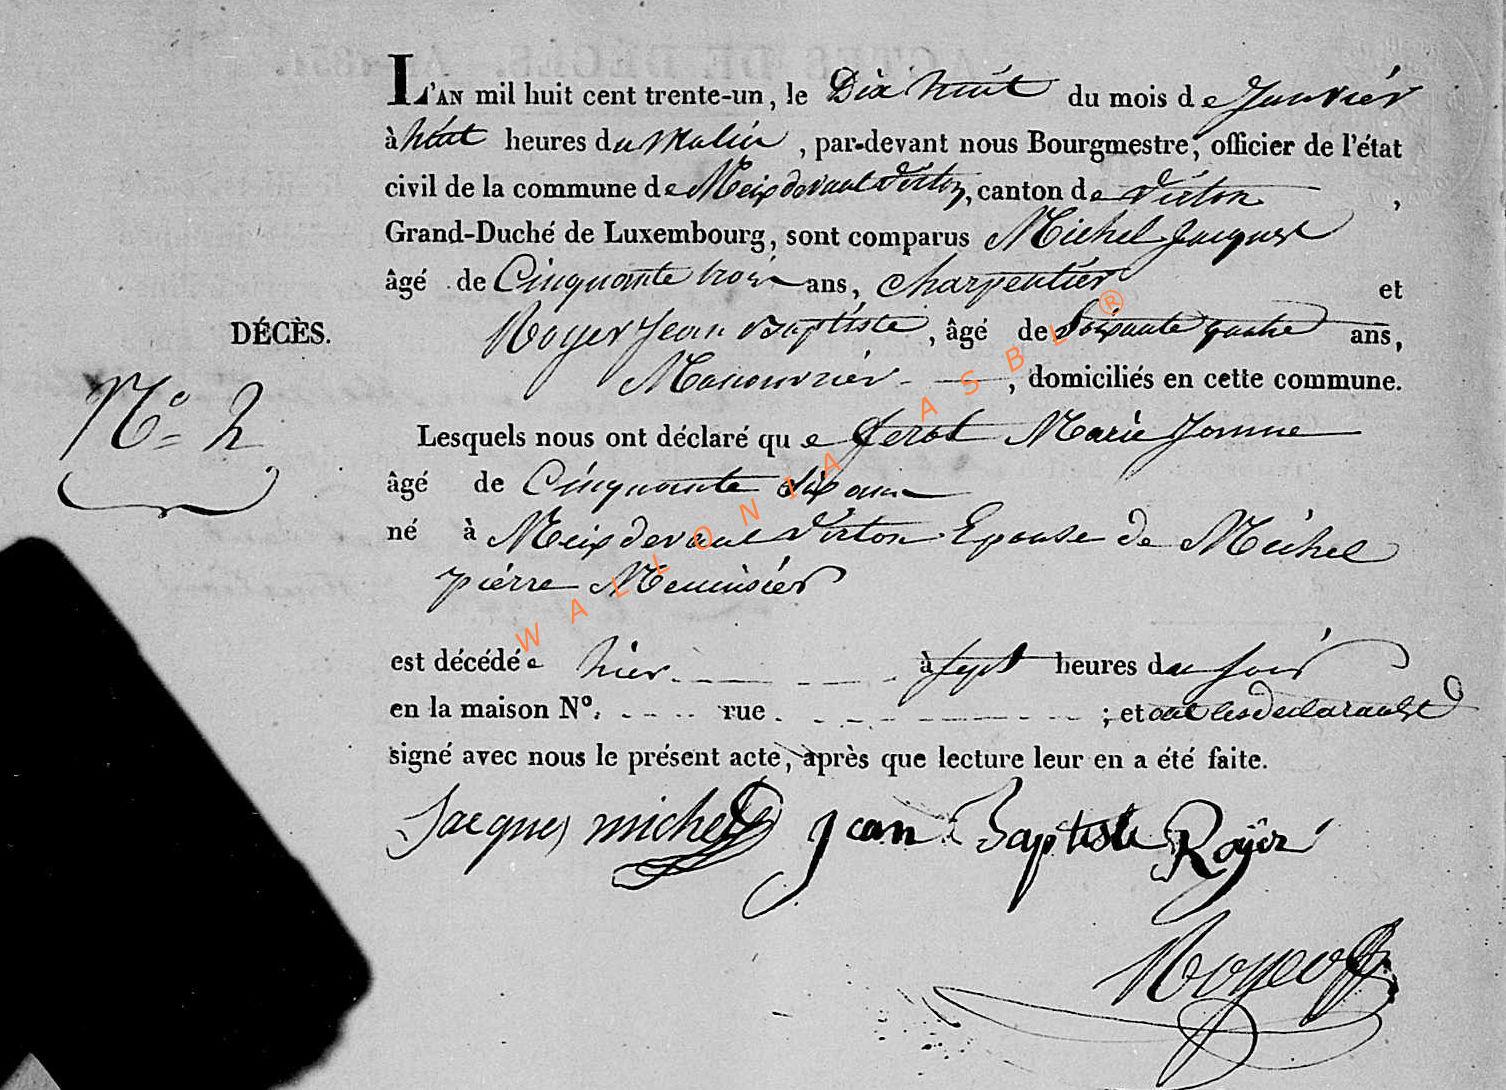 L'AN mil huit cent trente-un, le Dix huit du mois de Janvier
à huit heures du Matin, par-devant nous Bourgmestre, officier de l'état
civil de la commune de Meix devant Virton, canton de Virton,
Grand-Duché de Luxembourg, sont comparus Michel Jacques
âgé de Cinquante trois ans, Charpentier et
DÉCÈS.
Royer Jean Baptiste, âgé de Soixante quatre ans,
Manouvrier, domiciliés en cette commune.
N° 2
Lesquels nous ont déclaré que Marie Jeanne
âgé de Cinquante six ans
né à Meix devant Virton Epouse de Michel
pierre Menuisier
est décédée hier à sept heures du soir
en la maison N°. rue ; et ont les déclarants
signé avec nous le présent acte, après que lecture leur en a été faite.
Jacques michel Jean Baptiste Royer
WALLONIA ASBL ®